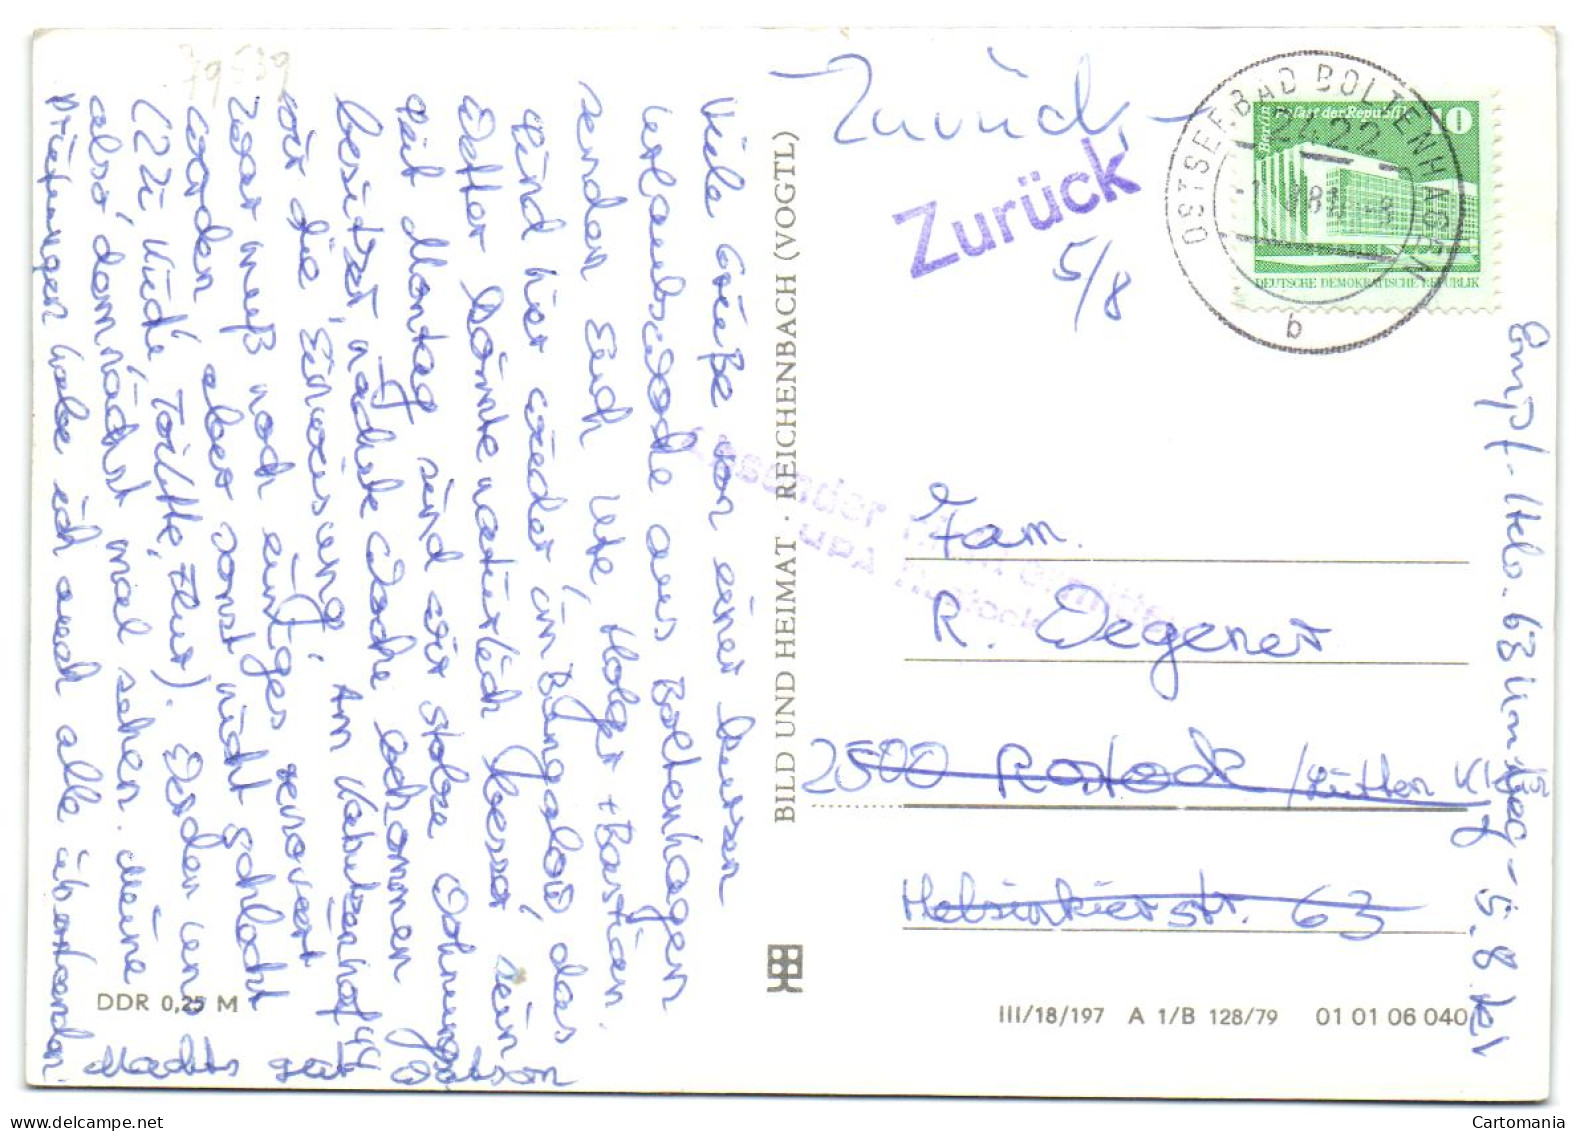 79539
Viele Grüße von einer kurzen
Urlaubswoche aus Boltenhagen
senden Euch Ute, Holger + Bastian.
Sind hier wieder im Bungalow, das
Wetter könnte natürlich besser sein.
Seit Montag sind wir stolze Wohnungs-
besitzer, nächste Woche bekommen
wir die Einweisung. Am Kabutzenhof 44
Zwar muß noch einiges renoviert
werden aber sonst nicht schlecht
(2Zi Küche, Toilette, Flur). Werden uns
also demnächst mal sehen. Meine
Prüfungen habe ich auch alle überstanden.
Machts gut
DDR 0,25 M
BILD UND HEIMAT · REICHENBACH (VOGTL)
Zurück
Zurück
5/8
OSTSEEBAD BOLTENHAGEN
2422
b
Berlin Palast der Republik 10
DEUTSCHE DEMOKRATISCHE REPUBLIK
Absender nicht ermittelt
HPA Rostock
Fam.
R. Wegener
2500 Rostock / Lütten Klein
Helsinkier str. 63
Empf. Hels. 63
5.8.
III/18/197 A 1/B 128/79 01 01 06 040
Cartomania